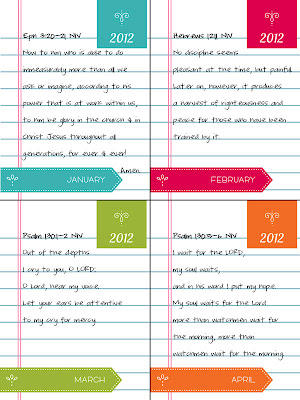 2012
Eph 3:20-21 NIV
Now to him who is able to do
immeasurably more than all we
ask or imagine, according to his
power that is at work within us,
to him be glory in the church & in
Christ Jesus throughout all
generations, for ever & ever!
Amen.
JANUARY
2012
Hebrews 12:11 NIV
No discipline seems
pleasant at the time, but painful.
Later on, however, it produces
a harvest of righteousness and
peace for those who have been
trained by it.
FEBRUARY
2012
Psalm 130:1-2 NIV
Out of the depths
I cry to you, O LORD;
O Lord, hear my voice.
Let your ears be attentive
to my cry for mercy.
MARCH
2012
Psalm 130:5-6 NIV
I wait for the LORD,
my soul waits,
and in his word I put my hope.
My soul waits for the Lord
more than watchmen wait for
the morning, more than
watchmen wait for the morning.
APRIL